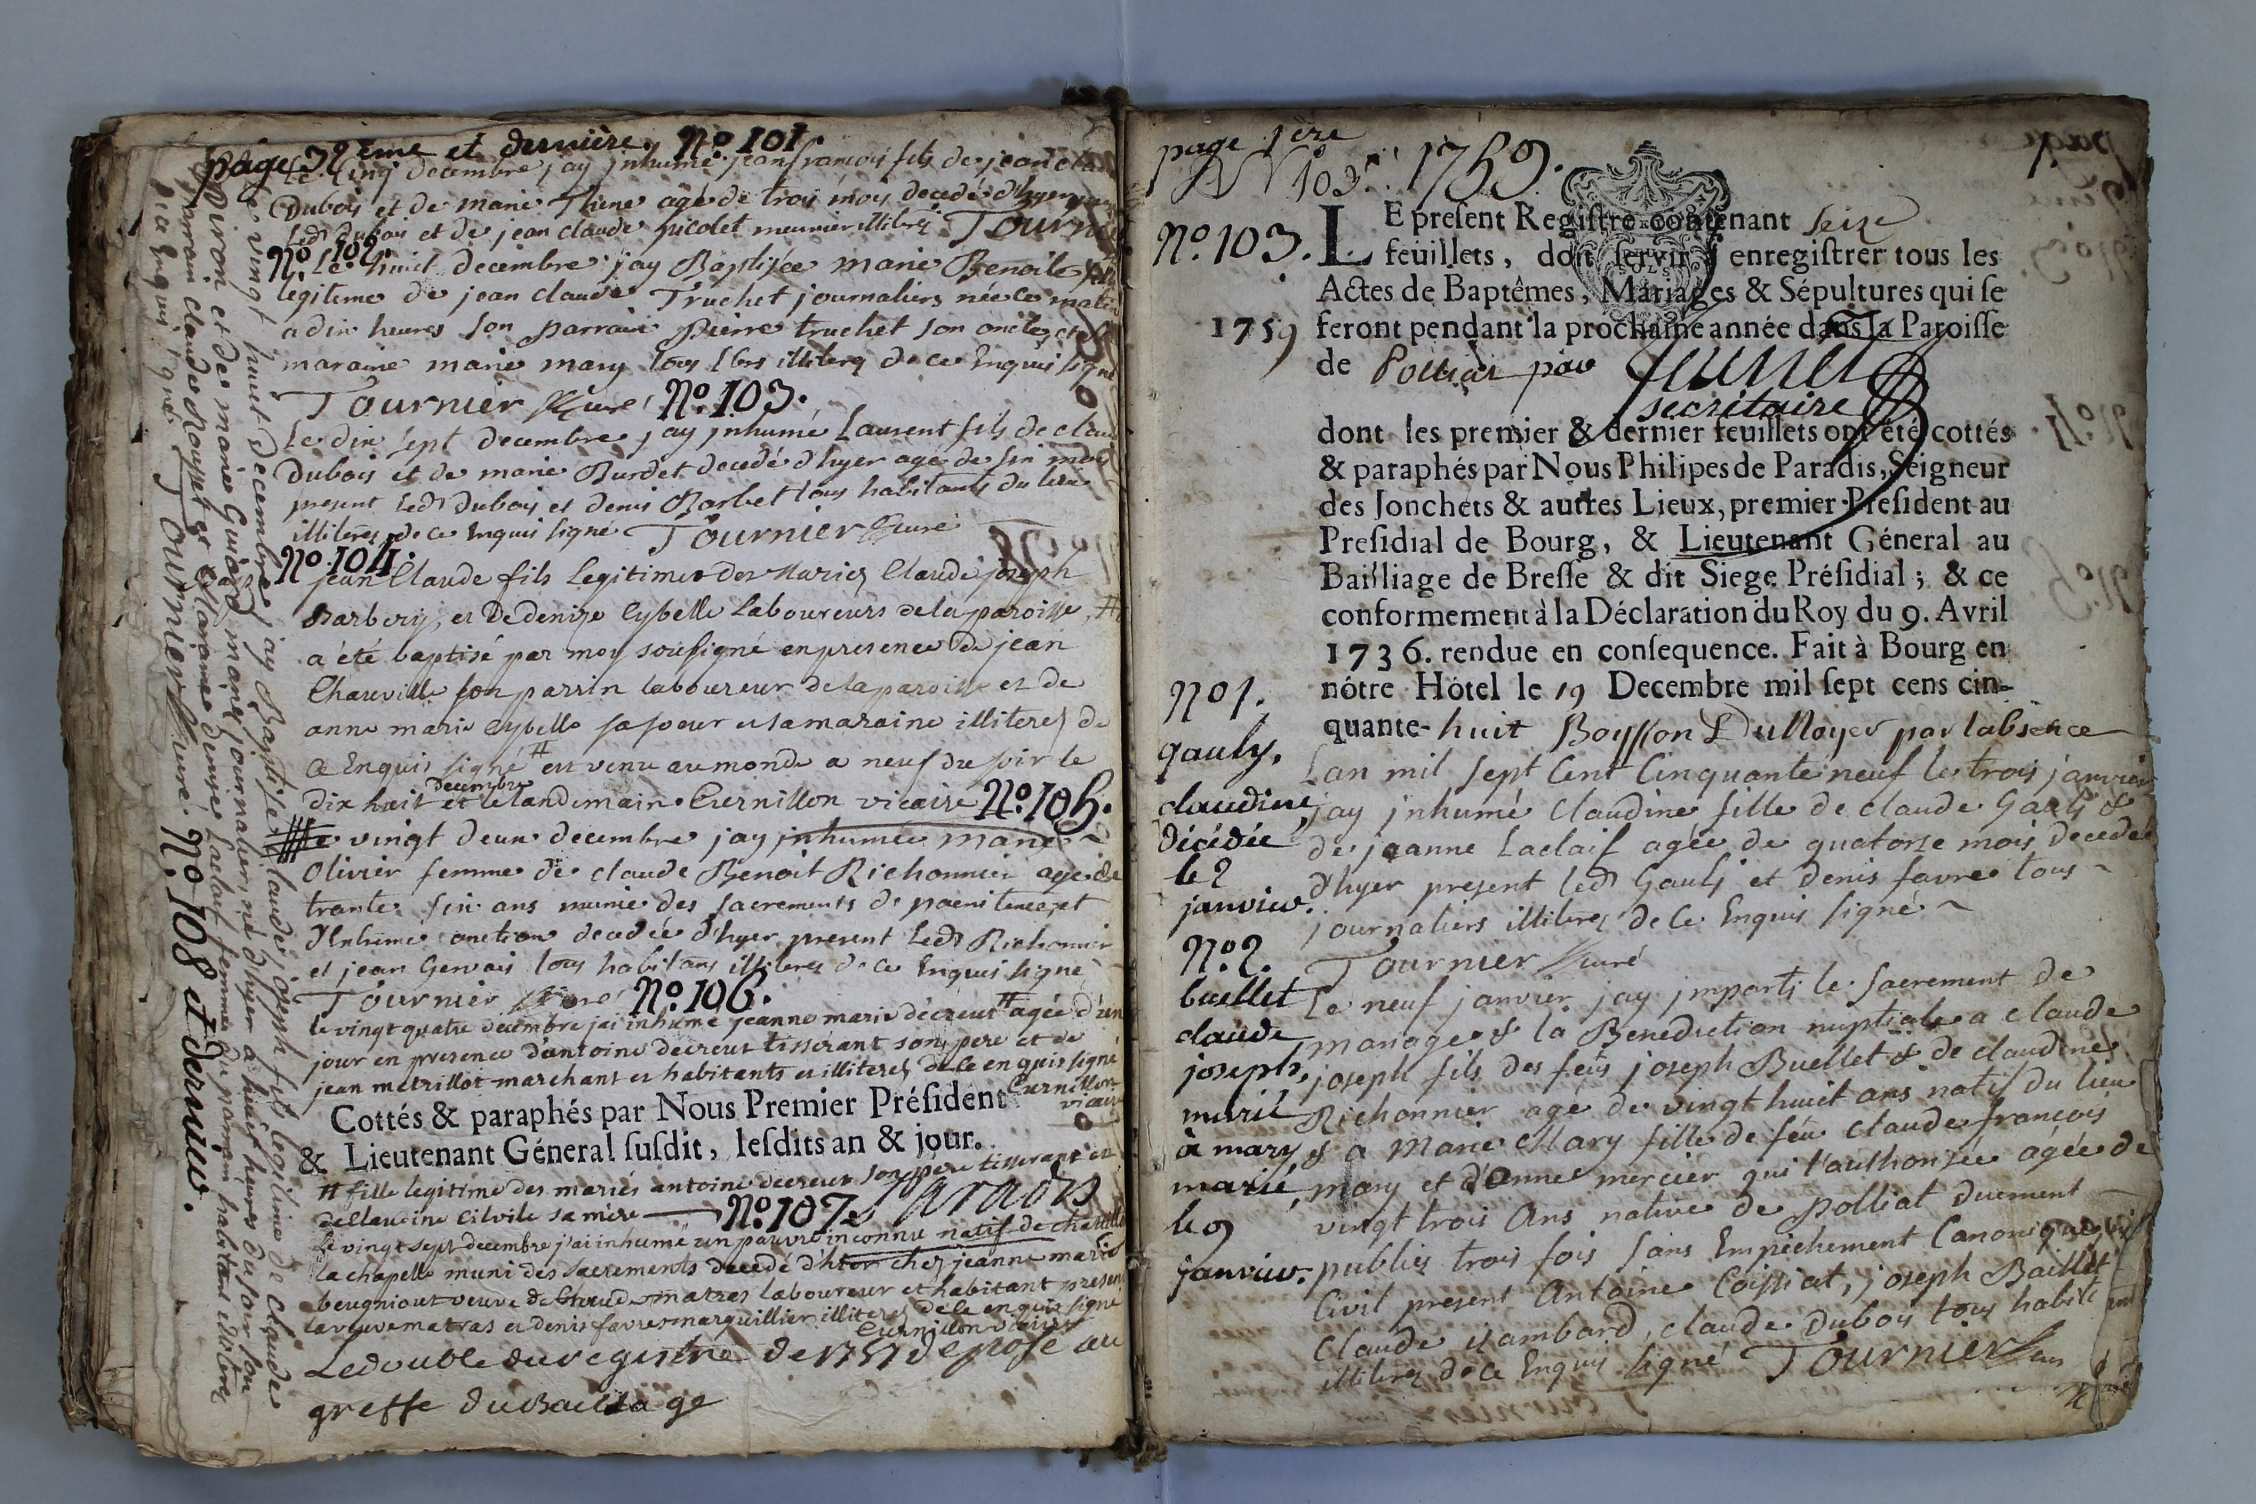 page 32 ème et dernière. No 101.
Le cinq decembre jay jnhumé jean francois fils de jean claude
Dubois et de marie Thene agé de trois mois decedé d'hyer
led dubois et de jean claude picolet meunier illiteres Tournier
No 102.
Le huit decembre jay Baptisée marie Benoite fille
legitime de jean claude Truchet journaliers née ce matin
a dix heures son parrain Pierre truchet son oncle et sa
maraine marie mary tous illiteres de ce Enquis signé
Tournier Curé No 103.
Le dix sept decembre jay jnhumé Laurent fils de claude
Dubois et de marie Burdet decedé d'hyer age de six mois
present led dubois et denis Barbet tous habitants du lieu
illiteres de ce Enquis signé Tournier Curé
No 104.
jean Claude fils Legitime des Mariés Claude joseph
Barbery, et De denize Cybelle Laboureurs de la paroisse, #
a été baptisé par moy soussigné en presence de jean
Chauville son parrin laboureur de la paroisse et de
anne marie Cybelle sa soeur et sa maraine illiteres de
Ce Enquis signé # est venu au monde a neuf du soir le
dix huit decembre et le landemain. Curnillon vicaire No 105.
Le vingt deux decembre jay jnhumée marie
Olivier femme de claude Benoit Richonnier agée de
trante six ans munie des sacrements de paenitence, et
d'Extreme onction decedée d'hyer present led Richonnier
et jean Gervais tous habitans illiteres de ce Enquis signé
Tournier Curé No 106.
le vingt quatre decembre jai inhumé jeanne marie decreut # agée d'un
jour en presence d'antoine decreut tisserant son pere et de
jean metrillot marchant et habitants et illiteres de ce enquis signé
Curnillon vicaire
Cottés & paraphés par Nous Premier Président
& Lieutenant Géneral susdit, lesdits an & jour.
# fille legitime des mariés antoine decreut son pere tisserant et
de Claudine Cilvile sa mere — No 107. Paradis
Le vingt sept decembre j'ai inhumé un pauvre inconnu natif de chatillon
la chapelle muni des sacrements decedé d'hier chez jeanne marie
beugniout veuve de Claude matras laboureur et habitant present
la veuve matras et denis favre marguillier illiteres de ce enquis signé
Curnillon vicaire
Le double du registre de 1757 depose au
greffe du Bailliage
Le vingt huit decembre jay Baptisé claude joseph fils legitime de claude
Piron et de marie Guiard mariés journaliers né d'hyer a huit heures du soir son
parrain claude Rousset et Maraine denise Laclaif femme du parrain habitans illiteres
de ce Enquis signé Tournier Curé No 108 et dernier.
page 1ère
No 103. 1759.
No. 103.
1759
LE present Registre contenant seize
feuillets, doit servir à enregistrer tous les
Actes de Baptêmes, Mariages & Sépultures qui se
feront pendant la prochaine année dans la Paroisse
de Polliat par
secritaire
dont les premier & dernier feuillets ont été cottés
& paraphés par Nous Philipes de Paradis, Seigneur
des Jonchets & autres Lieux, premier Président au
Presidial de Bourg, & Lieutenant Géneral au
Bailliage de Bresse & dit Siege Présidial; & ce
conformement à la Déclaration du Roy du 9. Avril
1736. rendue en consequence. Fait à Bourg en
nôtre Hôtel le 19 Decembre mil sept cens cin-
quante-huit Boysson Du Noyer par labsence
No 1.
gauly,
claudine
décédée
le 2
janvier.
Lan mil sept Cent Cinquante neuf le trois janvier
jay jnhumé Claudine fille de claude Gauly &
de jeanne Laclaif agée de quatorze mois decedée
d'hyer present led Gauly et denis favre tous
journaliers illiteres de Ce Enquis signé
Tournier Curé
No 2.
buellet
claude
joseph,
marié
à mary
marie
le 9
janvier.
Le neuf janvier jay jmparti le sacrement de
mariage & la Benediction nuptiale a claude
joseph fils des feus joseph Buellet & de claudine
Richonnier agé de vingt huit ans natif du lieu
& a Marie Mary fille de feu claude francois
mary et d'anne mercier qui l'authorisée agée de
vingt trois ans native de Polliat duement
publiés trois fois sans Empêchement Canonique ni
Civil present Antoine Coissiat, joseph Baillet
Claude isambard, claude Dubois tous habitants
illiteres de ce Enquis signé Tournier Curé